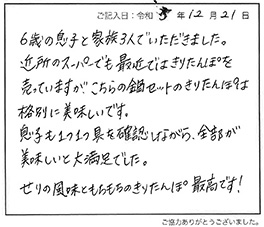 ご記入日：令和 5 年 12 月 21 日
6歳の息子と家族3人でいただきました。
近所のスーパーでも最近ではきりたんぽを
売っていますが、こちらの鍋セットのきりたんぽは
格別に美味しいです。
息子も1つ1つ具を確認しながら、全部が
美味しいと大満足でした。
せりの風味ともちもちのきりたんぽ 最高です!
ご協力ありがとうございました。